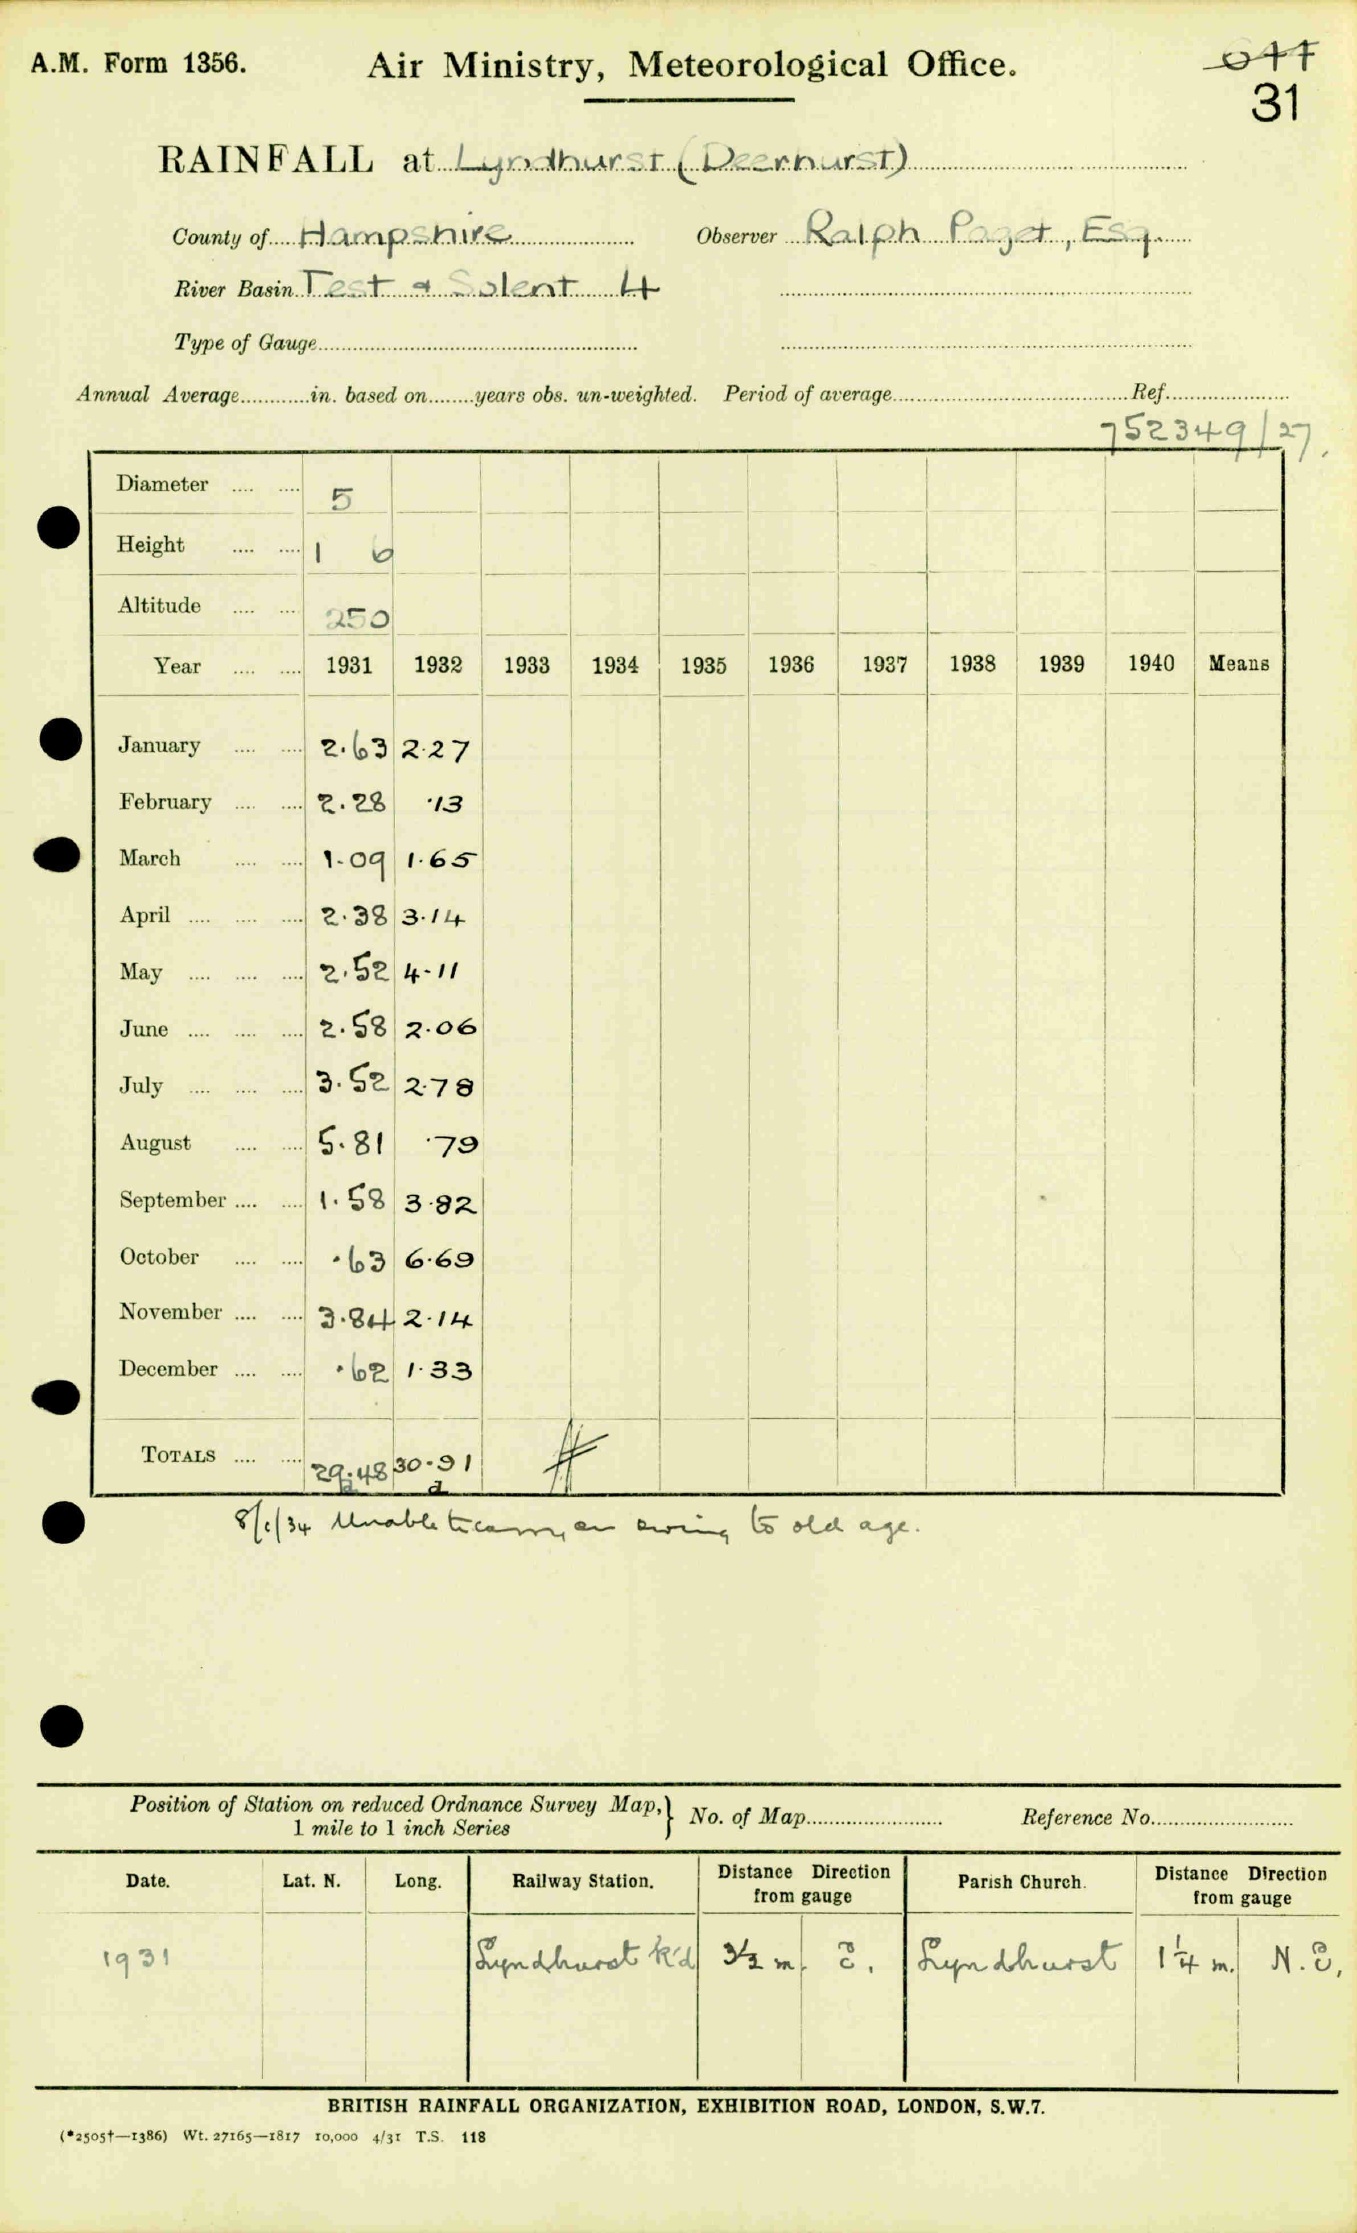 A.M. Form 1356. Air Ministry, Meteorological Office.
31
RAINFALL at Lyndhurst (Deerhurst)
County of Hampshire Observer Ralph Paget, Esq.
River Basin Test & Solent 4
Type of Gauge
Annual Average in. based on years obs. un-weighted. Period of average Ref.
752349/27.
Diameter 5
Height 1 6
Altitude 250
Year 1931 1932 1933 1934 1935 1936 1937 1938 1939 1940 Means
January 2.63 2.27
February 2.28 .13
March 1.09 1.65
April 2.38 3.14
May 2.52 4.11
June 2.58 2.06
July 3.52 2.78
August 5.81 .79
September 1.58 3.82
October .63 6.69
November 3.84 2.14
December .62 1.33
TOTALS 29.48 30.91
a a
8/1/34 Unable to carry on owing to old age.
Position of Station on reduced Ordnance Survey Map, } No. of Map Reference No.
1 mile to 1 inch Series
Date. Lat. N. Long. Railway Station. Distance Direction from gauge Parish Church. Distance Direction from gauge
1931 Lyndhurst R'd 3½ m. E. Lyndhurst 1¼ m. N.E.
BRITISH RAINFALL ORGANIZATION, EXHIBITION ROAD, LONDON, S.W.7.
(*2505†—1386) Wt. 27165—1817 10,000 4/31 T.S. 118